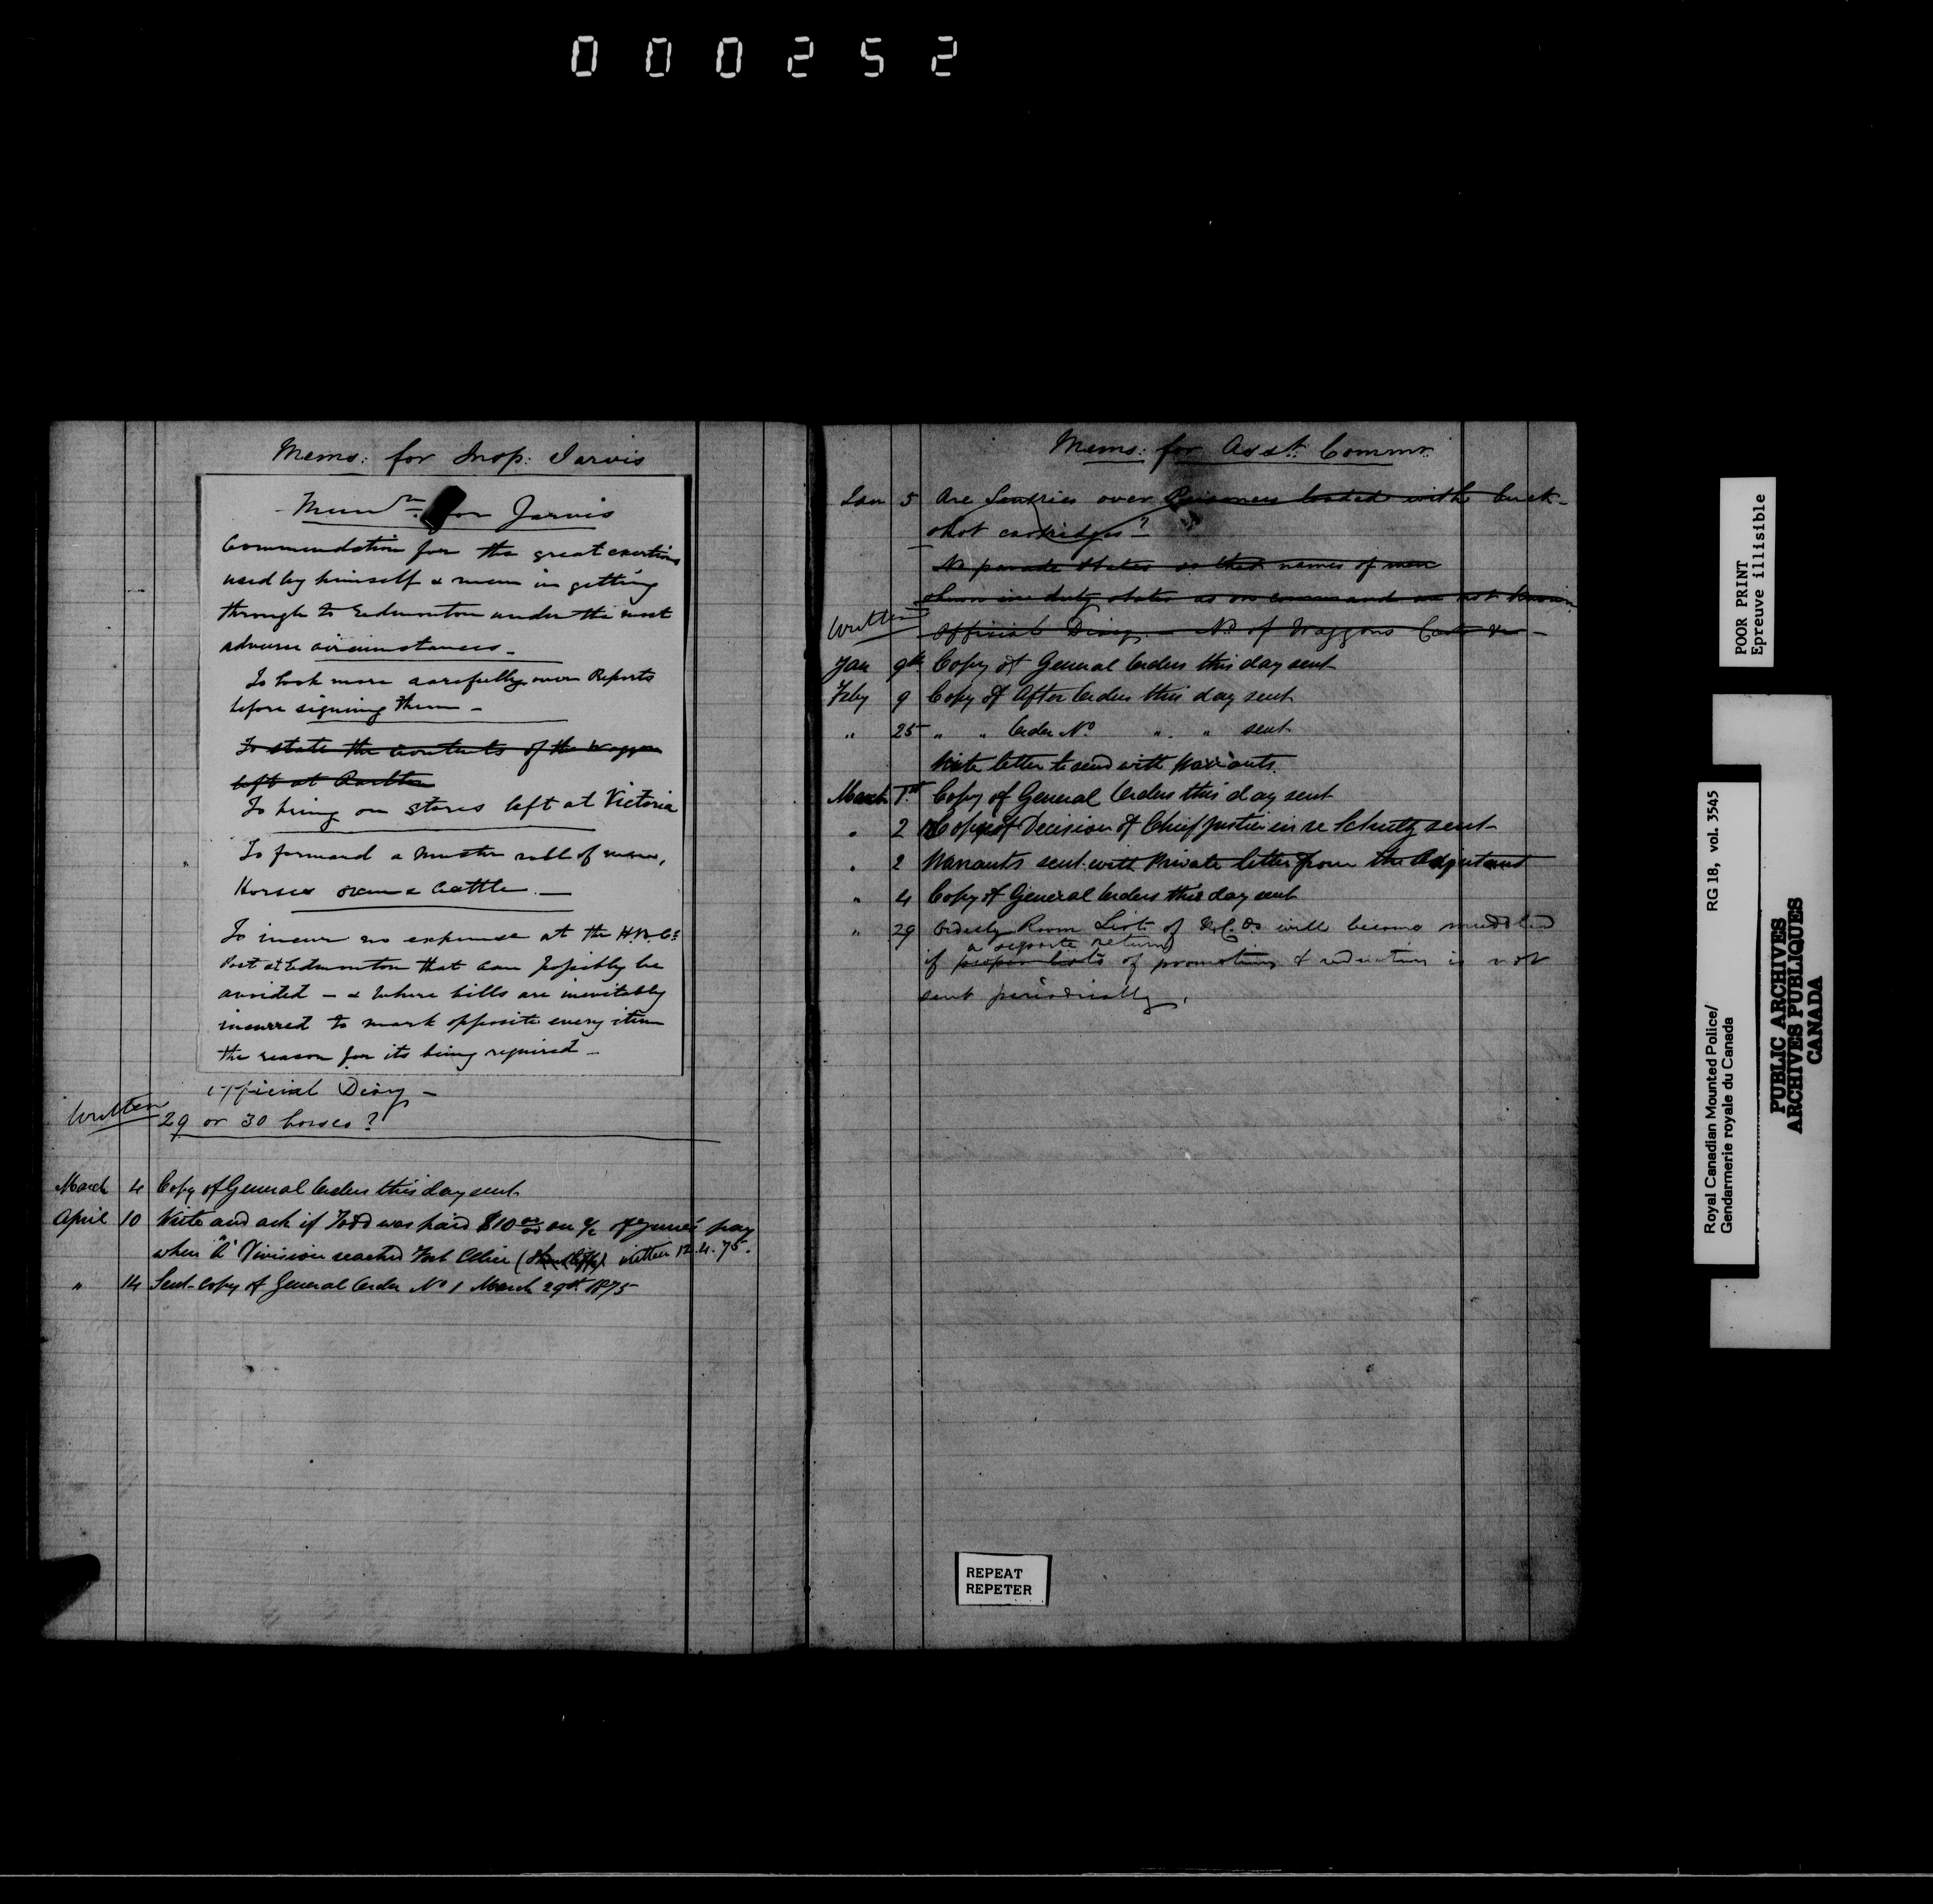 000252
Mems: for Insp: Jarvis
Memdm for Jarvis
Commendation for the great exertions
used by himself & men in getting
through to Edmonton under the most
adverse circumstances –
To look more carefully over Reports
before signing them –
To state the contents of the Waggon
left at
To bring on stores left at Victoria
To forward a Muster roll of men,
Horses oxen & Cattle. –
To incur no expense at the H.B.Cs
Post at Edmonton that can possibly be
avoided – & where bills are inevitably
incurred to mark opposite every item
the reason for its being required –
Official Diary –
Written 29 or 30 horses?
March 4 Copy of General Orders this day sent
April 10 Write and ask if Todd was paid $10 00/00 on a/c of June's pay
when "A" Division reached Fort Ellice written 12.4.75.
" 14 Sent Copy of General Order No 1 March 29th 1875
Mems: for Asst. Commr.
Jan 5 Are Sentries over Prisoners loaded with buck-
shot cartridges?
No parade states so that names of men
shown in duty states as on command are not known
Written Official Diary – No. of Waggons Carts &c –
Jan 9th Copy of General Orders this day sent
Feby 9 Copy of After Orders this day sent
" 25 " " Order No " " sent
Write letter to send with Warrants.
March 1st Copy of General Orders this day sent
" 2 Copy of Decision of Chief Justice in re Schultz sent
" 2 Warrants sent with Private letter from the Adjutant
" 4 Copy of General Orders this day sent
" 29 Orderly Room List of N.C.Os will become muddled
a separate return
if proper lists of promotions & reduction is not
sent periodically.
REPEAT
REPETER
POOR PRINT
Epreuve illisible
Royal Canadian Mounted Police/ RG 18, vol. 3545
Gendarmerie royale du Canada
PUBLIC ARCHIVES
ARCHIVES PUBLIQUES
CANADA